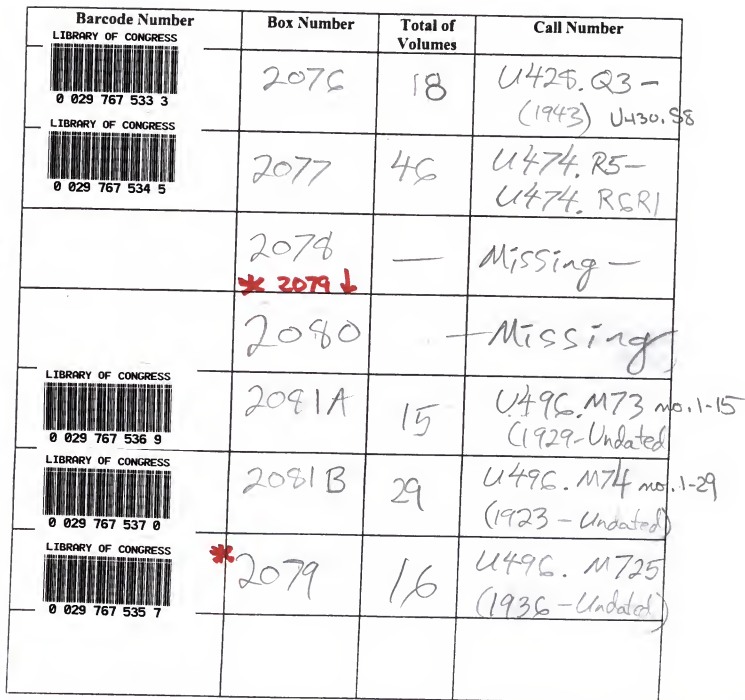 Barcode Number Box Number Total of Volumes Call Number
LIBRARY OF CONGRESS
0 029 767 533 3
2076 18 U428.Q3 –
(1943) U430.S8
LIBRARY OF CONGRESS
0 029 767 534 5
2077 46 U474.R5–
U474.R6R1
2078 — Missing —
* 2079 ↓
2080 — Missing
LIBRARY OF CONGRESS
0 029 767 536 9
2081A 15 U496.M73 no.1-15
(1929-Undated
LIBRARY OF CONGRESS
0 029 767 537 0
2081B 29 U496.M74 no.1-29
(1923 – Undated)
LIBRARY OF CONGRESS
0 029 767 535 7
* 2079 16 U496.M725
(1936 – Undated)